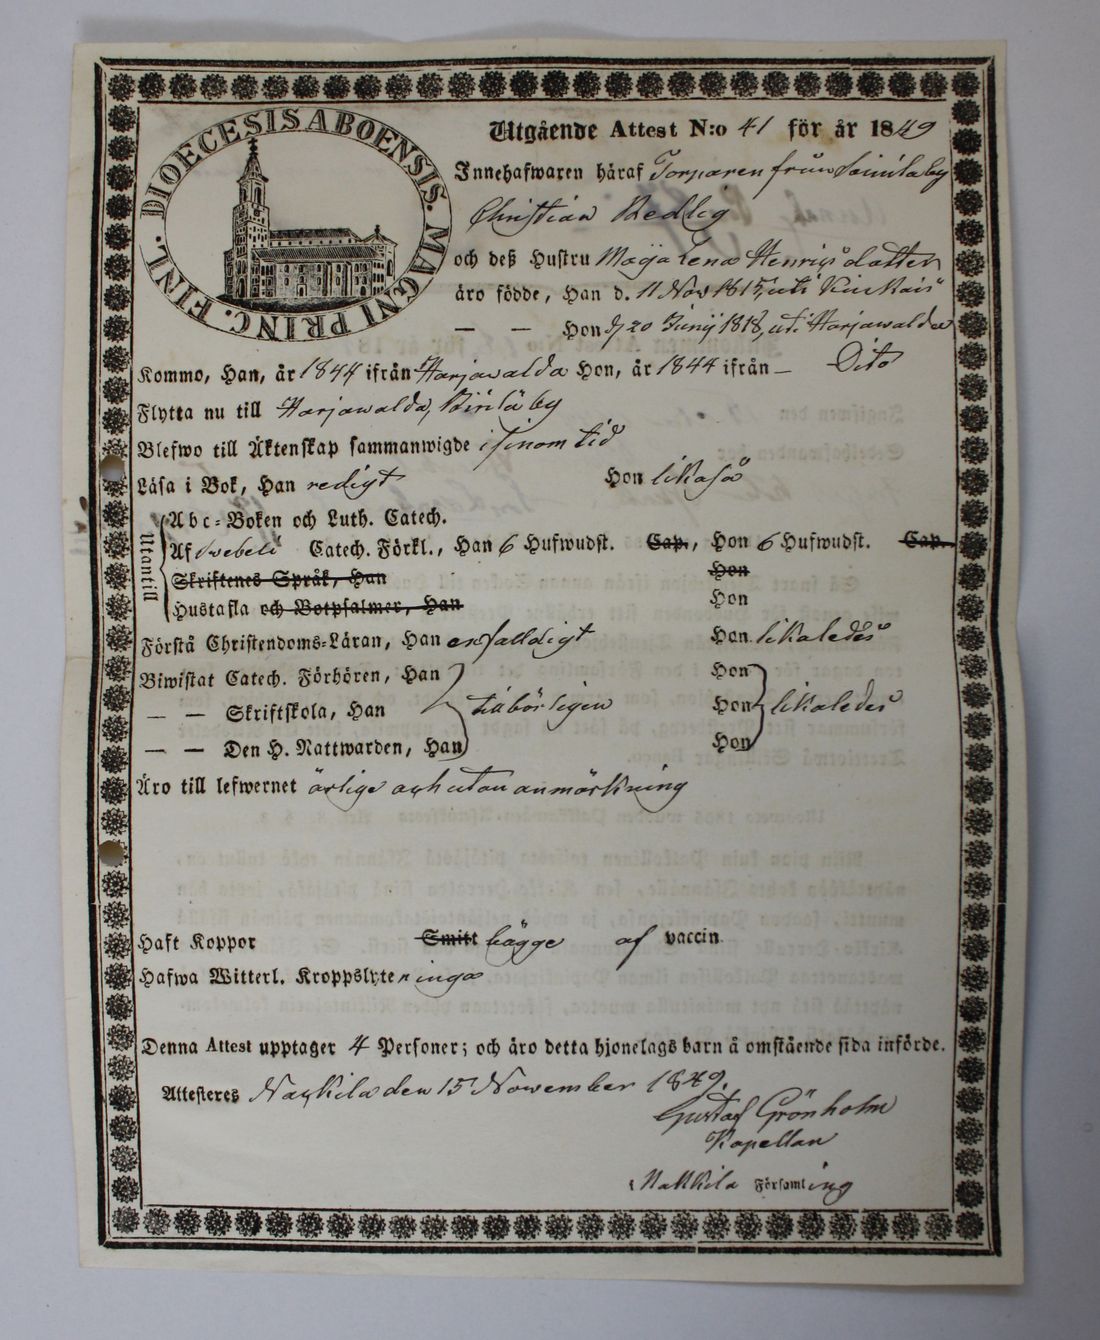 DIOECESIS ABOENSIS. MAGNI PRINC. FINL.
Utgående Attest N:o 41 för år 1849
Innehafwaren häraf Torparen från by
Christian Redlig
och deß Hustru Maja Lena Henrigsdatter
äro födde, Han d. 11 Nov 1815, uti
— — Hon d 20 Junij 1818, uti Harjawalda
Kommo, Han, år 1844 ifrån Harjawalda Hon, år 1844 ifrån — Dito
Flytta nu till Harjawalda, by
Blefwo till Äktenskap sammanwigde i sinom tid
Läsa i Bok, Han redigt Hon likaså
Utantill
Abc-Boken och Luth. Catech.
Af Svebeli Catech. Förkl., Han 6 Hufwudst. Cap., Hon 6 Hufwudst. Cap.
Skriftenes Språk, Han Hon
Hustafla och Botpsalmer, Han Hon
Förstå Christendoms-Läran, Han enfalldigt Hon likaledes
Biwistat Catech. Förhören, Han Hon
— — Skriftskola, Han tilbörligen Hon likaledes
— — Den H. Nattwarden, Han Hon
Äro till lefwernet ärlige och utan anmärkning
Haft Koppor Smitt bägge af vaccin.
Hafwa Witterl. Kroppslyten inga
Denna Attest upptager 4 Personer; och äro detta hjonelags barn å omstående sida införde.
Attesteres Nackila den 15 November 1849.
Gustaf Grönholm
Kapellan
i Nakkila Församling